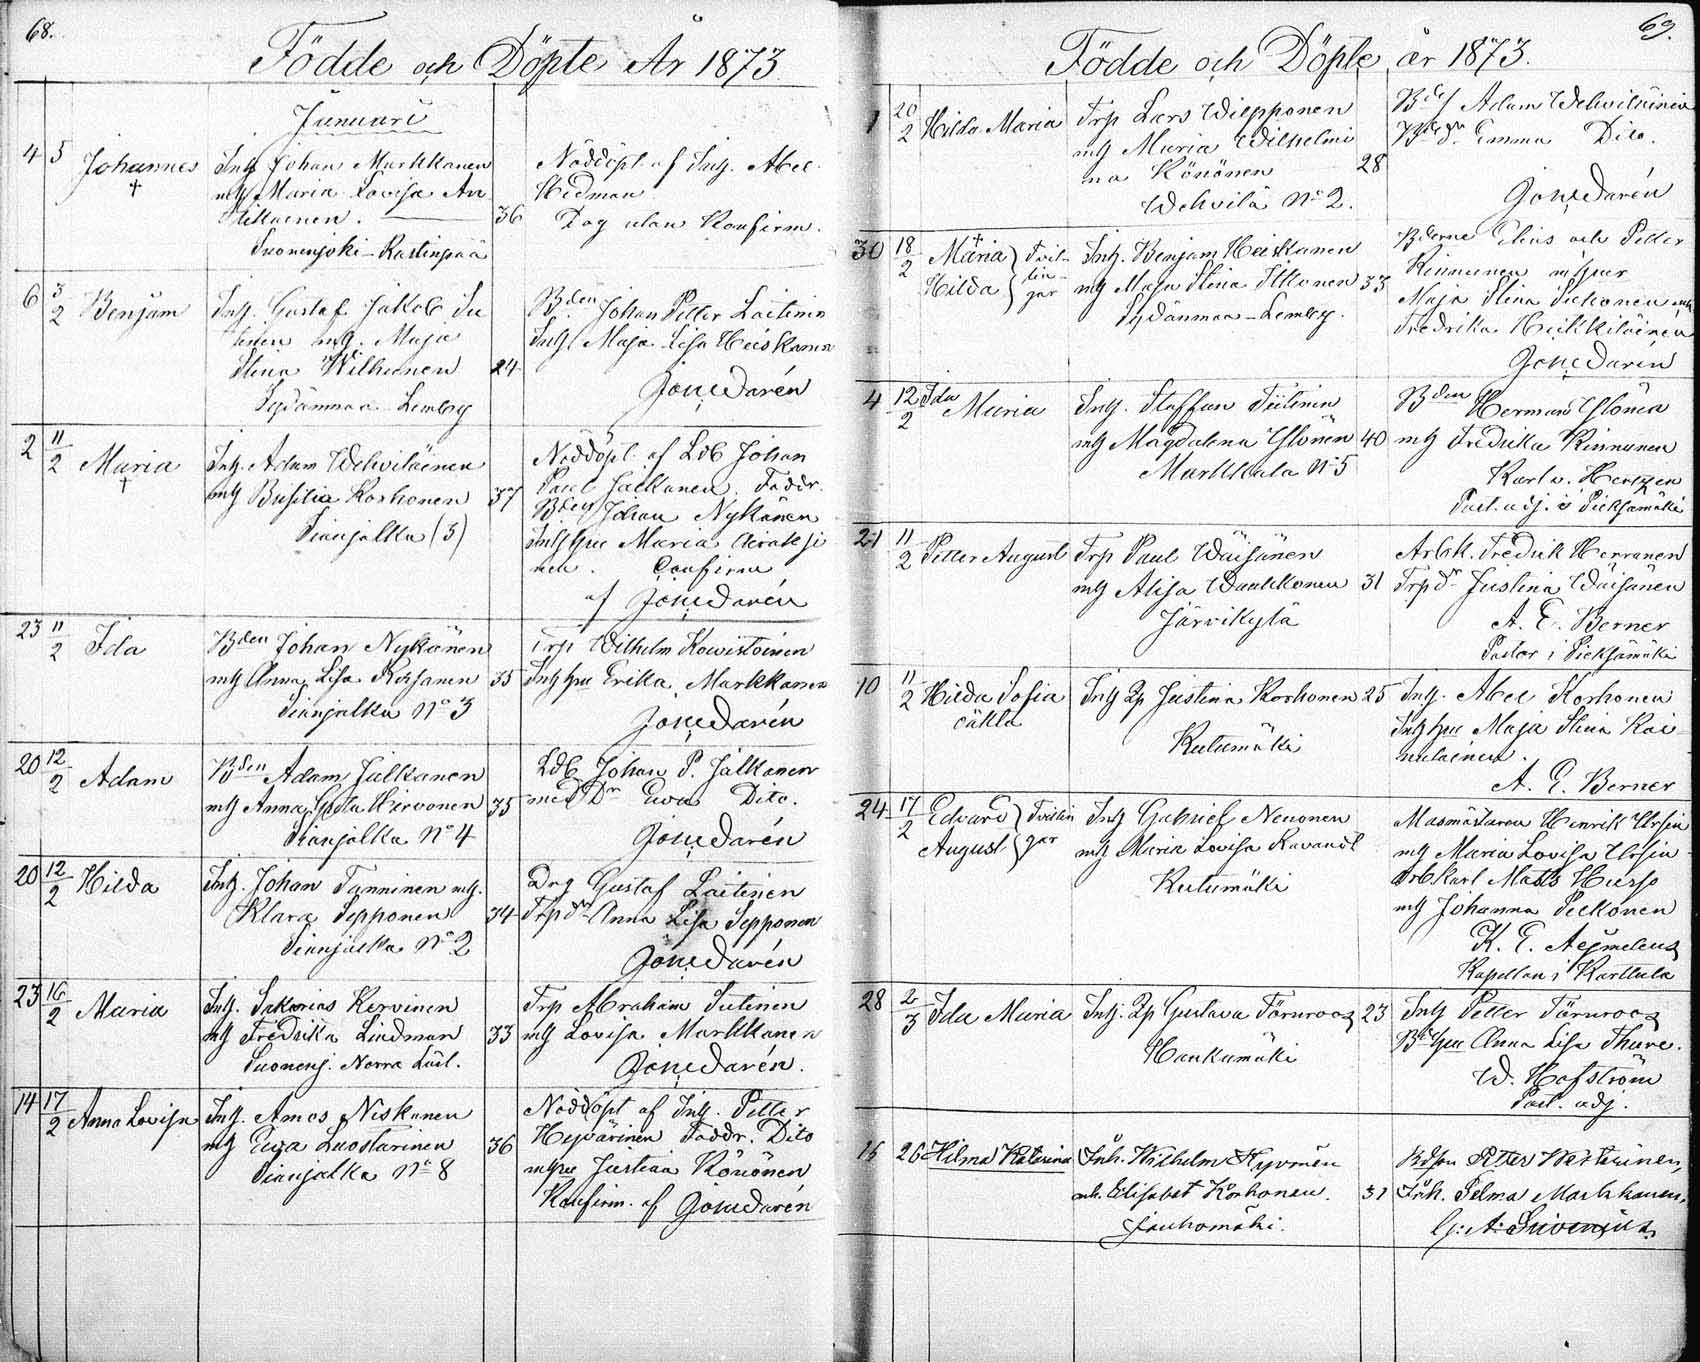 68.
Födde och Döpte År 1873
Januari
4 5 Johannes † Inh Johan Markkanen
mh Maria Lovisa An
tikainen. 36
Suonenjoki - Rastinpää
Nöddöpt af Inh. Abel
Hedman
Dog utan Konfirm.
6 3/2 Benjam Inh. Gustaf Jakob Su
tinen mh. Maja
Stina Wilhunen 24
Sydänmaa - Lemby
Bden Johan Petter Laitinen
Inh Maja Lisa Heiskanen
Jon. Darén
2 11/2 Maria † Inh. Adam Wehviläinen
mh Busilia Korhonen 37
Sianjalka (3)
Nöddöpt af Ldb Johan
Paul Jalkanen. Faddr.
Bden Johan Nykänen
Inhhu Maria Airaksi
nen. Confirm
af Jon. Darén
23 11/2 Ida Bden Johan Nykänen
mh Anna Lisa Korhonen 35
Sianjalka No 3
Trp Wilhelm Kowistoinen
Inhhu Erika Markkanen
Jon. Darén
20 12/2 Adam Bden Adam Jalkanen
mh Anna Greta Hirvonen 35
Sianjalka No 4
Ldb Johan P. Jalkanen
med Dn Ewa Dito.
Jon. Darén
20 12/2 Hilda Inh. Johan Tanninen mh.
Klara Sepponen 34
Sianjalka No 2
Drg Gustaf Laitinen
Trp dr Anna Lisa Sepponen
Jon. Darén
23 16/2 Maria Inh. Sakarias Kervinen
mh Fredrika Lindman 33
Suonenj. Norra Lust.
Trp Abraham Sutinen
mh Lovisa Markkanen
Jon. Darén.
14 17/2 Anna Lovisa Inh. Amos Niskanen
mh Ewa Luostarinen 36
Sianjalka No 8
Nöddöpt af Inh. Petter
Hyvärinen Faddr. Dito
mhu Justina Könönen
Konfirm. af Jon. Darén
69.
Födde och Döpte år 1873.
1 20/2 Hilda Maria Trp Lars Wilpponen
mh Maria Wilhelmi
na Könönen 28
Wehvilä No 2.
Bds Adam Wehviläinen
Bds dr Emma Dito.
Jon. Darén
30 18/2 Maria † Hilda Tvil-
lin-
gar
Inh. Benjam Heiskanen
mh Maja Stina Ikonen 33
Sydänmaa - Lemby.
Bderne Elias och Petter
Rinnunen m hjuer
Maja Stina Pekonen och
Fredrika Heikkiläinen
Jon. Darén
4 12/2 Ida Maria Inh. Staffan Tiitinen
mh Magdalena Ylönen 40
Markkala No 5
Bden Herman Ylönen
mh Fredrika Rinnunen
Karl v. Hertzen
Past. adj. i Pieksämäki
21 11/2 Petter August Trp Paul Wäisänen
mh Alisa Waukkonen 31
Järvikylä
Arbk. Fredrik Herranen
Trp dr Justina Wäisänen
A. E. Berner
Pastor i Pieksämäki
10 11/2 Hilda Sofia oäkta Inh Qp Justina Korhonen 25
Kutumäki
Inh. Abel Korhonen
Inhhu Maja Stina Kai
nulainen.
A. E. Berner
24 17/2 Edvard August Tvillin
gar
Inh Gabriel Neuonen
mh Maria Lovisa Ravandt
Kutumäki
Masmästaren Henrik Ursin
mh Maria Lovisa Ursin
Arbkarl Matts Husso
mh Johanna Pelkonen
K. E. Aejmeleus
Kapellan i Karttula
28 2/3 Ida Maria Inh. Qp Gustava Törnroos 23
Haukumäki
Inh Petter Törnroos
Bdhu Anna Lisa Thure.
W. Hofström
Past. adj.
15 26 Hilma Katarina Inh. Wilhelm Hyvönen
mh. Elisabet Korhonen. 31
Jauhomäki.
Bdson Petter Westerinen,
Inh. Selma Markkanen.
G: A: Snivenius.